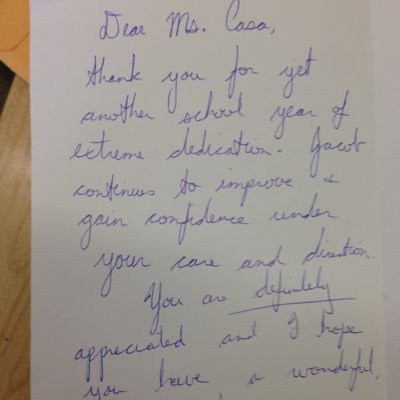 Dear Ms. Casa,
thank you for yet
another school year of
extreme dedication. Jacob
continues to improve &
gain confidence under
your care and direction.
You are definitely
appreciated and I hope
you have a wonderful,